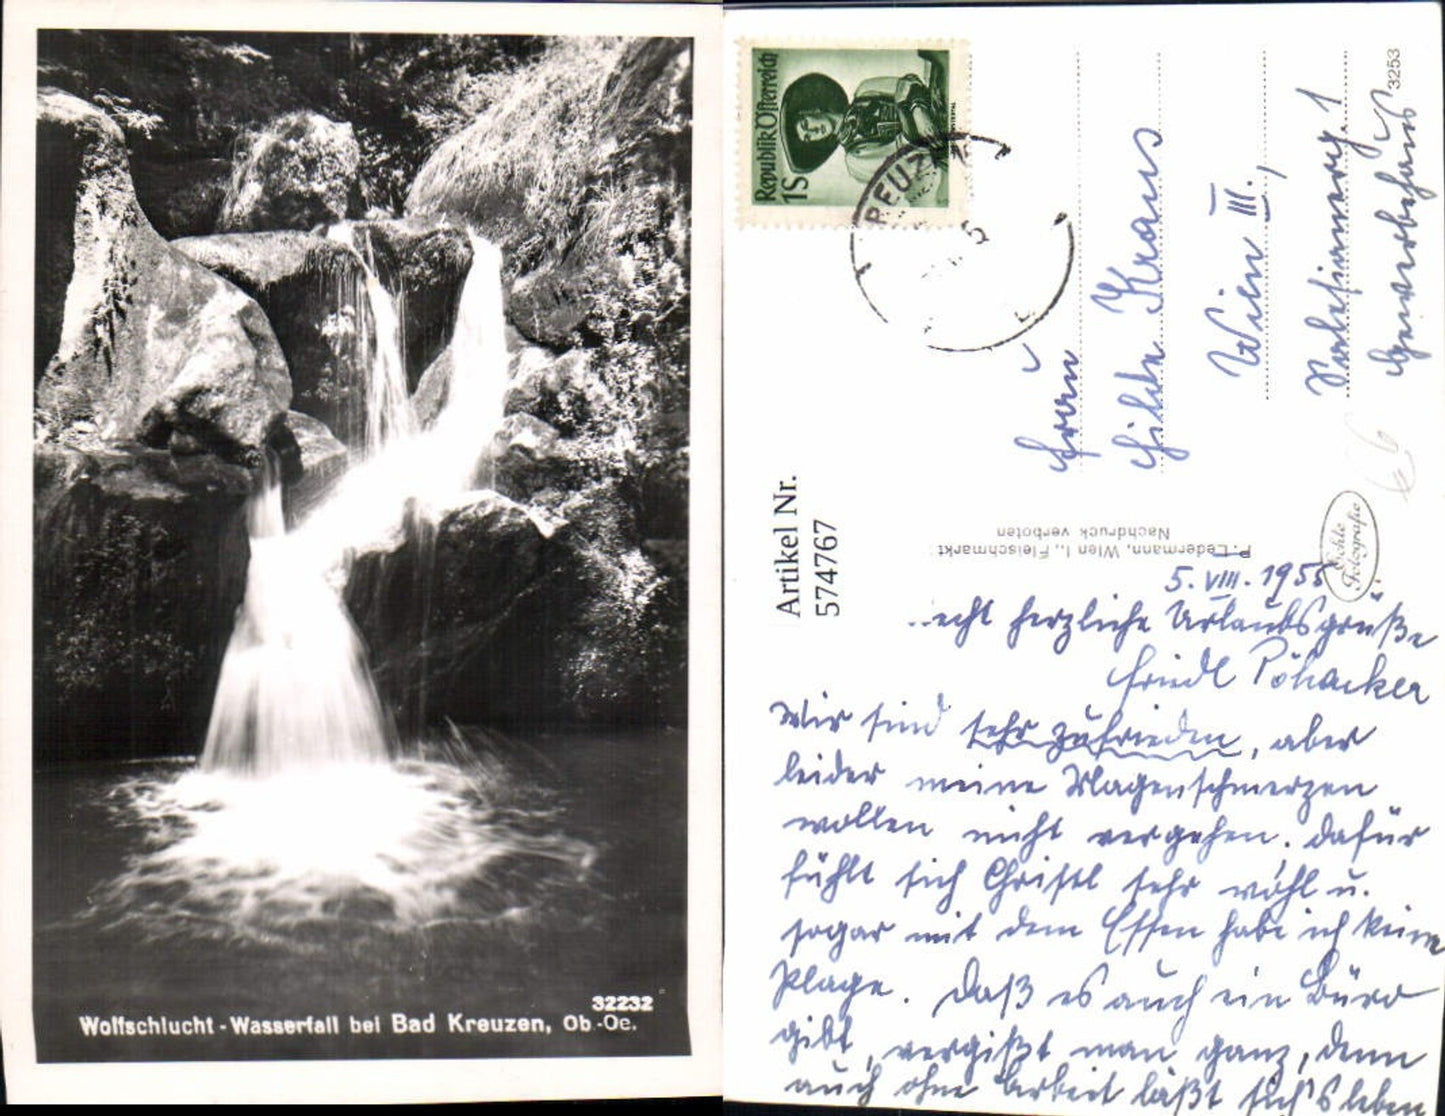 32232
Wolfschlucht - Wasserfall bei Bad Kreuzen, Ob.-Oe.
Republik Österreich
1 S
KREUZEN
3253
Frau
Hilde Kraus
Wien III.,
Salesianerg. 1
Gewerbehaus
66
Artikel Nr.
574767
P. Ledermann, Wien I., Fleischmarkt
Nachdruck verboten
Echte
Fotografie
5. VIII. 1955
echt herzliche Urlaubsgrüße
Friedl Pöhacker
Wir sind sehr zufrieden, aber
leider meine Magenschmerzen
wollen nicht vergehen. Dafür
fühlt sich Christl sehr wohl u.
sogar mit dem Essen habe ich keine
Plage. Daß es auch ein Büro
gibt, vergißt man ganz, denn
auch ohne Arbeit läßt sich's leben